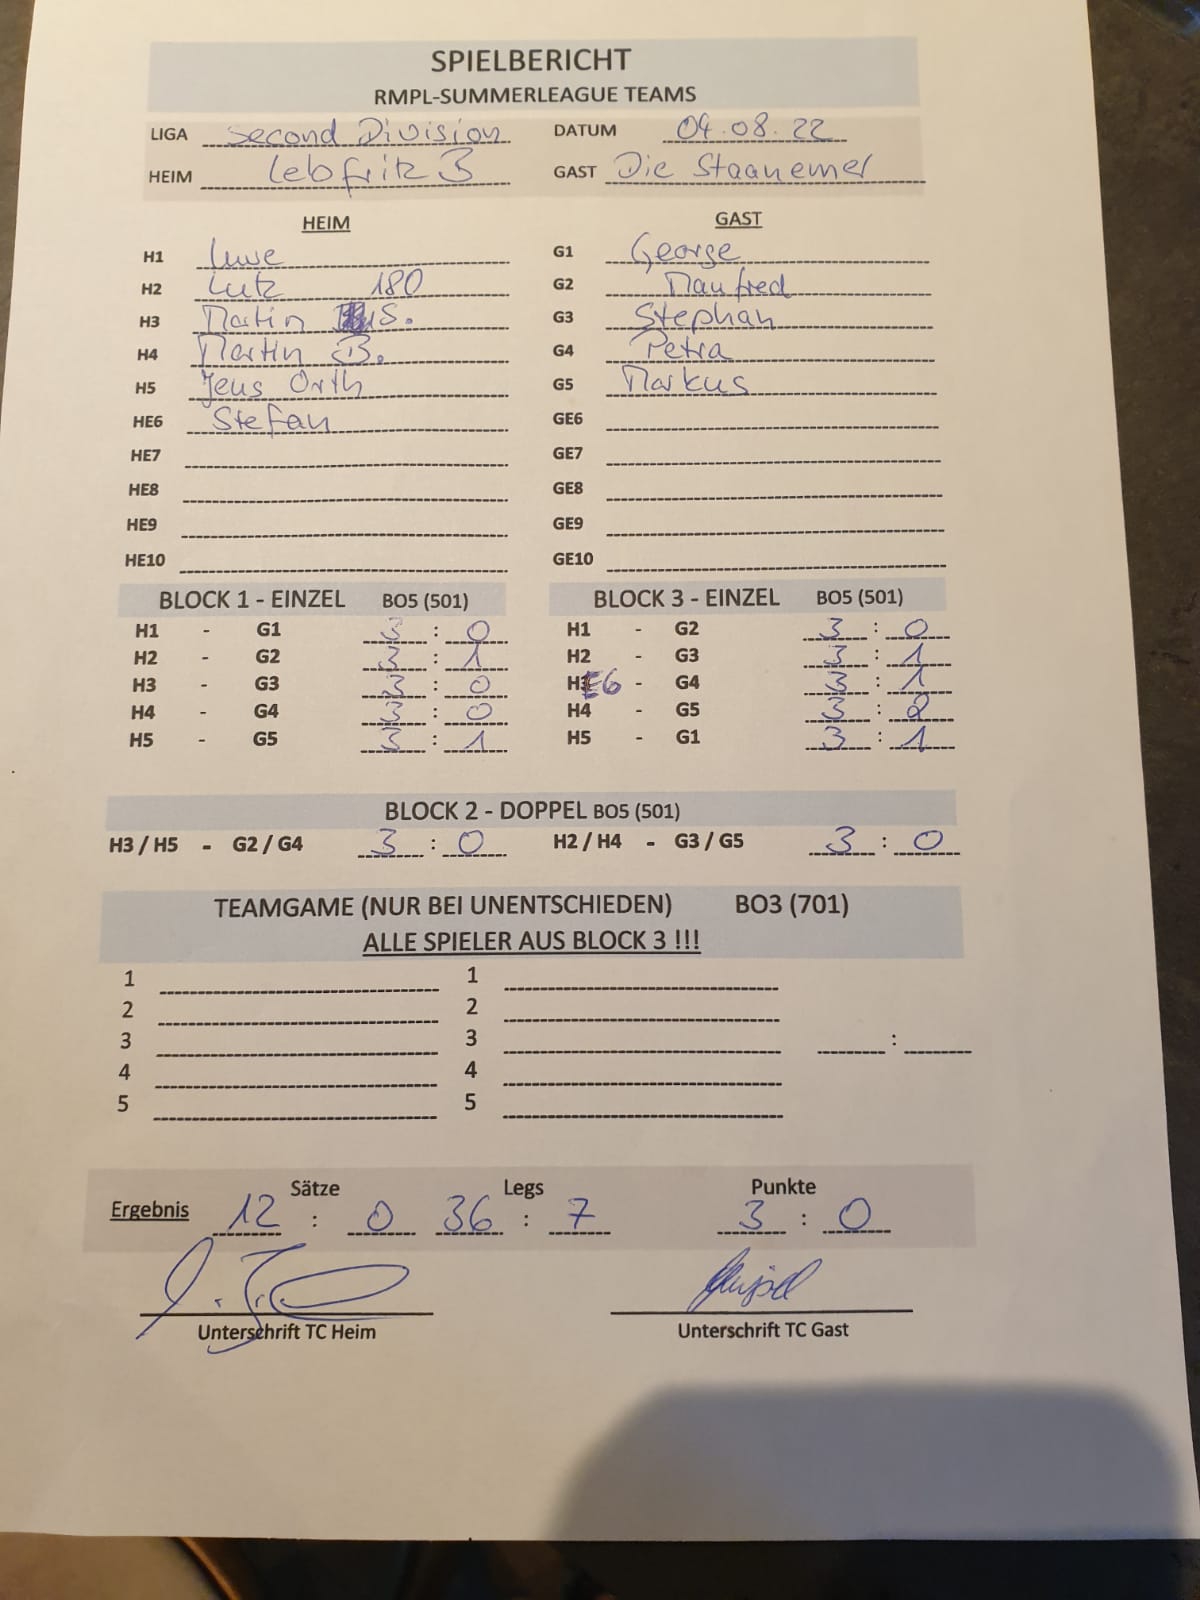 SPIELBERICHT
RMPL-SUMMERLEAGUE TEAMS
LIGA Second Division DATUM 04.08.22
HEIM Lebfritz 3 GAST Die Staanemer
HEIM GAST
H1 Uwe G1 George
H2 Lutz 180 G2 Manfred
H3 Martin S. G3 Stephan
H4 Martin B. G4 Petra
H5 Jens Orth G5 Markus
HE6 Stefan GE6
HE7 GE7
HE8 GE8
HE9 GE9
HE10 GE10
BLOCK 1 - EINZEL BO5 (501) BLOCK 3 - EINZEL BO5 (501)
H1 - G1 3 : 0 H1 - G2 3 : 0
H2 - G2 3 : 1 H2 - G3 3 : 1
H3 - G3 3 : 0 HE6 - G4 3 : 1
H4 - G4 3 : 0 H4 - G5 3 : 2
H5 - G5 3 : 1 H5 - G1 3 : 1
BLOCK 2 - DOPPEL BO5 (501)
H3 / H5 - G2 / G4 3 : 0 H2 / H4 - G3 / G5 3 : 0
TEAMGAME (NUR BEI UNENTSCHIEDEN) BO3 (701)
ALLE SPIELER AUS BLOCK 3 !!!
1 1
2 2
3 3 :
4 4
5 5
Sätze Legs Punkte
Ergebnis 12 : 0 36 : 7 3 : 0
Unterschrift TC Heim Unterschrift TC Gast